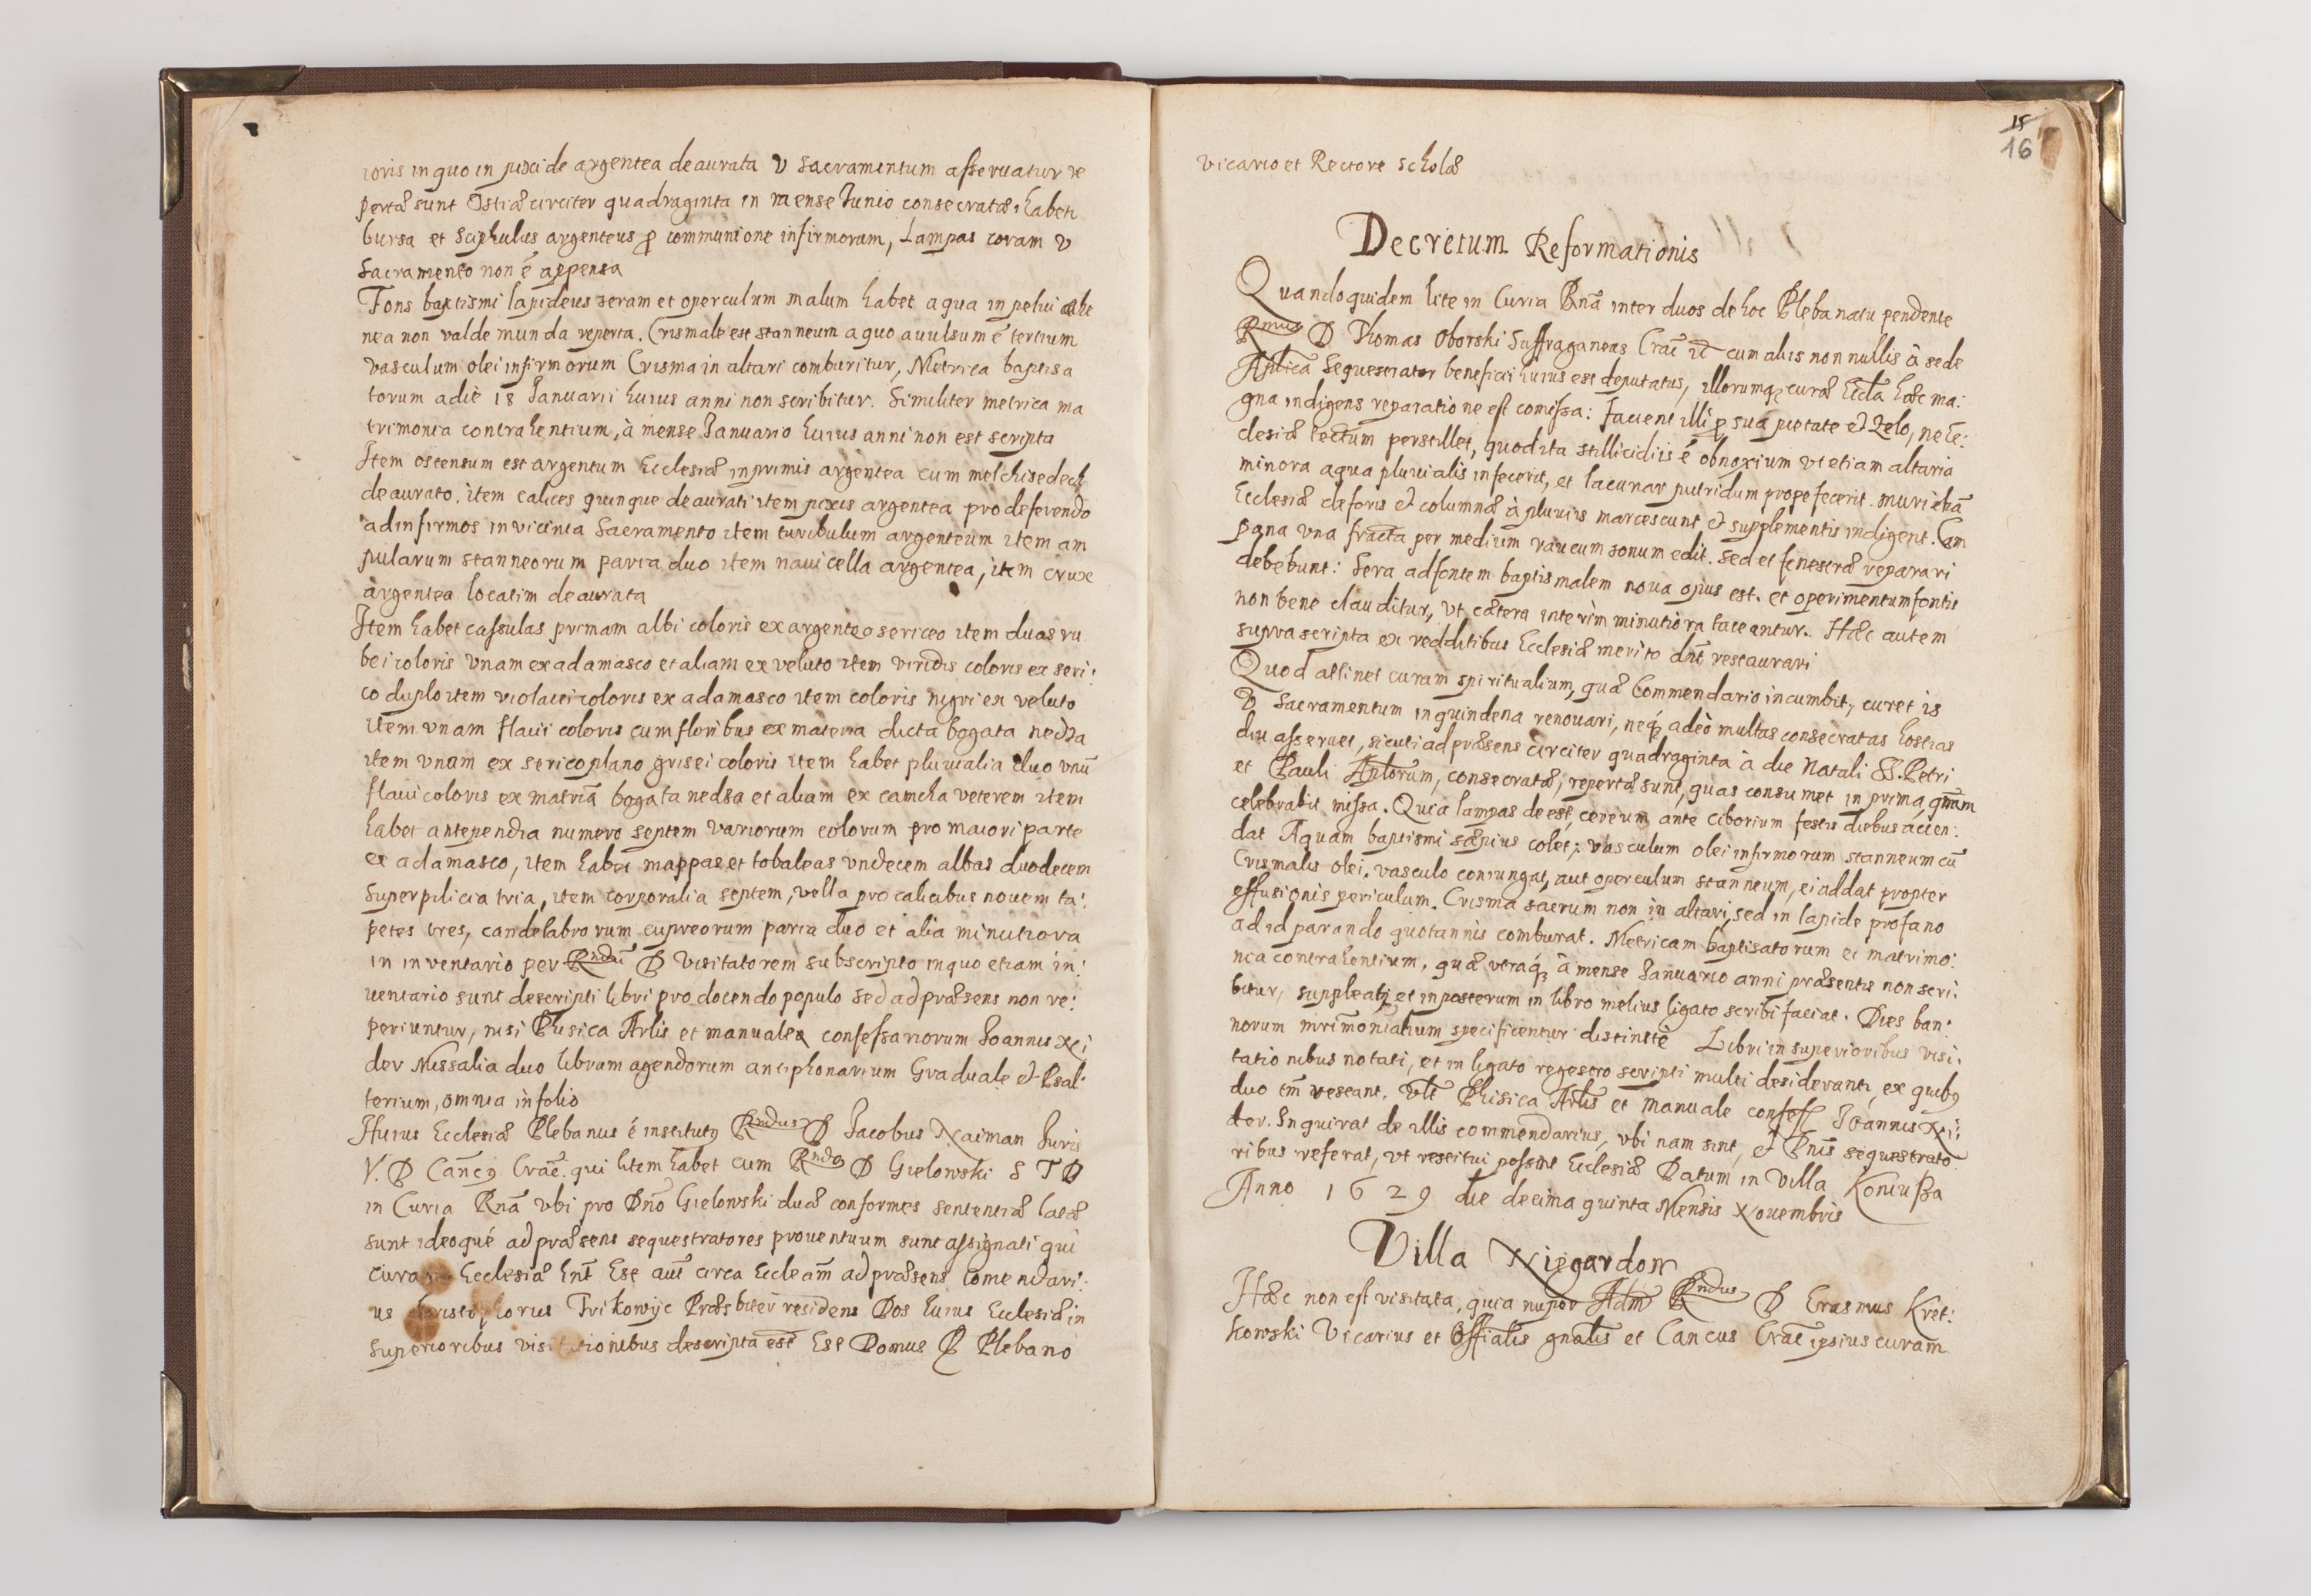 ioris in quo in pixide argentea deaurata V Sacramentum asseruatur re
pertæ sunt Ostiæ circiter quadraginta in mense Junio consecratæ, habet
bursa et Sciphulus argenteus ꝑ communione infirmorum, Lampas coram V
Sacramento non ē appensa
Fons baptismi lapideus seram et operculum malum habet aqua in pelui ahe
nea non valde munda reperta. Crismale est stanneum a quo auulsum ē tertium
vasculum olei infirmorum Crisma in altari comburitur, Metrica baptisa
torum a die 18 Januarii huius anni non scribitur. Similiter metrica ma
trimonia contrahentium, à mense Januario huius anni non est scripta
Item ostensum est argentum Ecclesiæ inprimis argentea cum melchisedech
deaurato. item calices quinque deaurati item pixis argentea pro deferendo
ad infirmos in vicinia Sacramento item turibulum argenteum item am
pularum stanneorum paria duo item nauicella argentea, item crux
argentea locatim deaurata
Item habet cassulas primam albi coloris ex argenteo sericeo item duas ru
bei coloris vnam ex adamasco et aliam ex veluto item viridis coloris ex seri:
co duplo item violacei coloris ex adamasco item coloris nigri ex veluto
item vnam flaui coloris cum floribus ex materia dicta bogata nedza
item vnam ex serico plano grisei coloris item habet pluuialia duo vnū
flaui coloris ex matriā bogata nedsa et aliam ex camcha veterem item
habet antependia numero septem variorum colorum pro maiori parte
ex adamasco, item habet mappas et tobaleas vndecem albas duodecem
superpilicia tria, item corporalia septem, vella pro calicibus nouem ta:
petes tres, candelabrorum cupreorum paria duo et alia minutiora
in inventario per Rndū D Visitatorem subscripto in quo etiam in:
uentario sunt descripti libri pro docendo populo sed ad præsens non re:
periuntur, nisi Phisica Artis et manuale confessariorum Joannis xei
der Missalia duo librum agendorum antiphonarium Graduale et Psal:
terium, omnia in folio
Huius Ecclesiæ Plebanus ē institutꝯ Rndus D Jacobus Naiman Juris
V. D Cāncꝯ Crāc. qui litem habet cum Rndo D Gielowski S T D
in Curia Rnā vbi pro Dnō Gielowski duæ conformes sententiæ latæ
sunt ideoqué ad præsens sequestratores prouentuum sunt assignati qui
curam Ecclesiæ hnt Est aut circa Eccleām ad præsens comendari:
us Christophorus Trikowijc Præsbiter residens Dos huius Ecclesiæ in
superioribus visitationibus descripta est Est Domus ꝑ Plebano
15
16
vicario et Rectore scholæ
Decretum Reformationis
Quandoquidem lite in Curia Rnā inter duos de hoc Plebanatu pendente
Rmus D Thomas Oborski Suffraganeus Crac̄ et cum aliis nonnullis à sede
Aplica Sequestrator beneficii huius est deputatus, illorumq; curæ Eccla hæc ma:
gna indigens reparatione est comissa: facient illi ꝑ sua pietate et Zelo, ne Ec:
clesiæ tectum perstillet, quod ita stillicidiis ē obnoxium vt etiam altaria
minora aqua pluuialis infecerit, et lacunar putridum prope fecerit. muri etiā
Ecclesiæ deforis et columnæ à pluuiis marcescunt et supplementis indigent. Cam
pana vna fracta per medium raucum sonum edit. sed et fenestræ reparari
debebunt: Sera ad fontem baptismalem noua opus est. et operimentum fontis
non bene clauditur, vt cætera interim minutiora taceantur. Hæc autem
suprascripta ex redditibus Ecclesiæ merito dnt restaurari
Quod attinet curam spiritualium, quæ Commendario incumbit, curet is
V Sacramentum in quindena renouari, neq; adeò multas consecratas hostias
diu asseruet, sicuti ad præsens circiter quadraginta à die Natali SS. Petri
et Pauli Aplorum, consecratæ, repertæ sunt, quas consumet in prima quam
celebrabit missa. Quia lampas deest, cereum ante ciborium festis diebus accen:
dat Aquam baptismi sæpius colet; vasculum olei infirmorum stanneum cū
Crismalis olei, vasculo coniungat, aut operculum stanneum, ei addat propter
effusionis periculum. Crisma sacrum non in altari, sed in lapide profano
ad id parando quotannis comburat. Metricam baptisatorum et matrimo:
nia contrahentium, quæ vtraq; à mense Januario anni præsentis non scri:
bitur, suppleat, et inposterum in libro melius ligato scribi faciat. Dies ban:
norum mrimonialium specificentur distinctè Libri in superioribus visi:
tationibus notati, et in ligato regestro scripti multi desiderantr, ex quibꝯ
duo tm restant. Vlt Phisica Artis et Manuale confess Joannis xei:
der. Inquirat de illis commendarius, vbi nam sint, et Dnis sequestrato
ribus referat, vt restitui possint Ecclesiæ Datum in Villa Koniussa
Anno 1629 die decima quinta Mensis Nouembris
Villa Niegardow
Hæc non est visitata, quia nuper Adm Rndus D Erasmus Kret:
kowski Vicarius et Offialis gnalis et Cancus Crac̄ ipsius curam